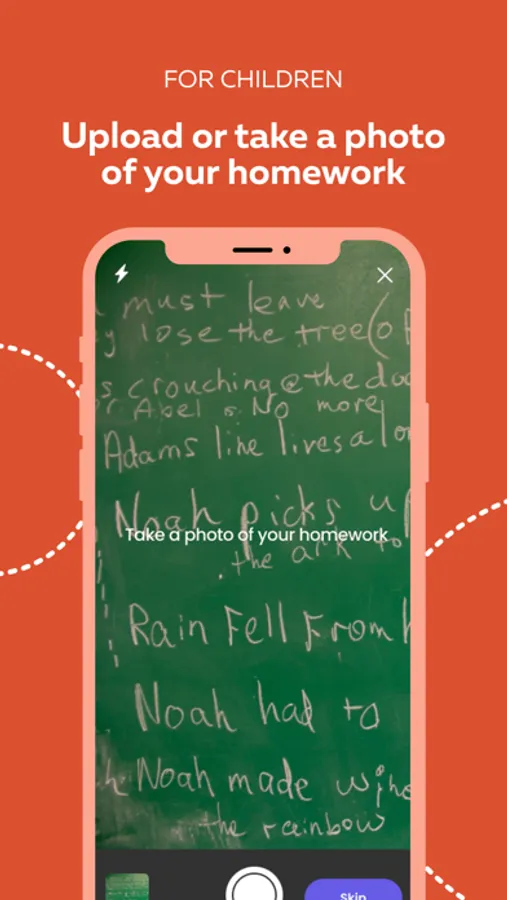 FOR CHILDREN
Upload or take a photo
of your homework
must leave
lose the tree (of
s crouching @ the doo
Abel is No more
Adams line lives a lon
Noah picks up
Take a photo of your homework
the ark to
Rain Fell From h
Noah had to
Noah made wine
the rainbow
Skip